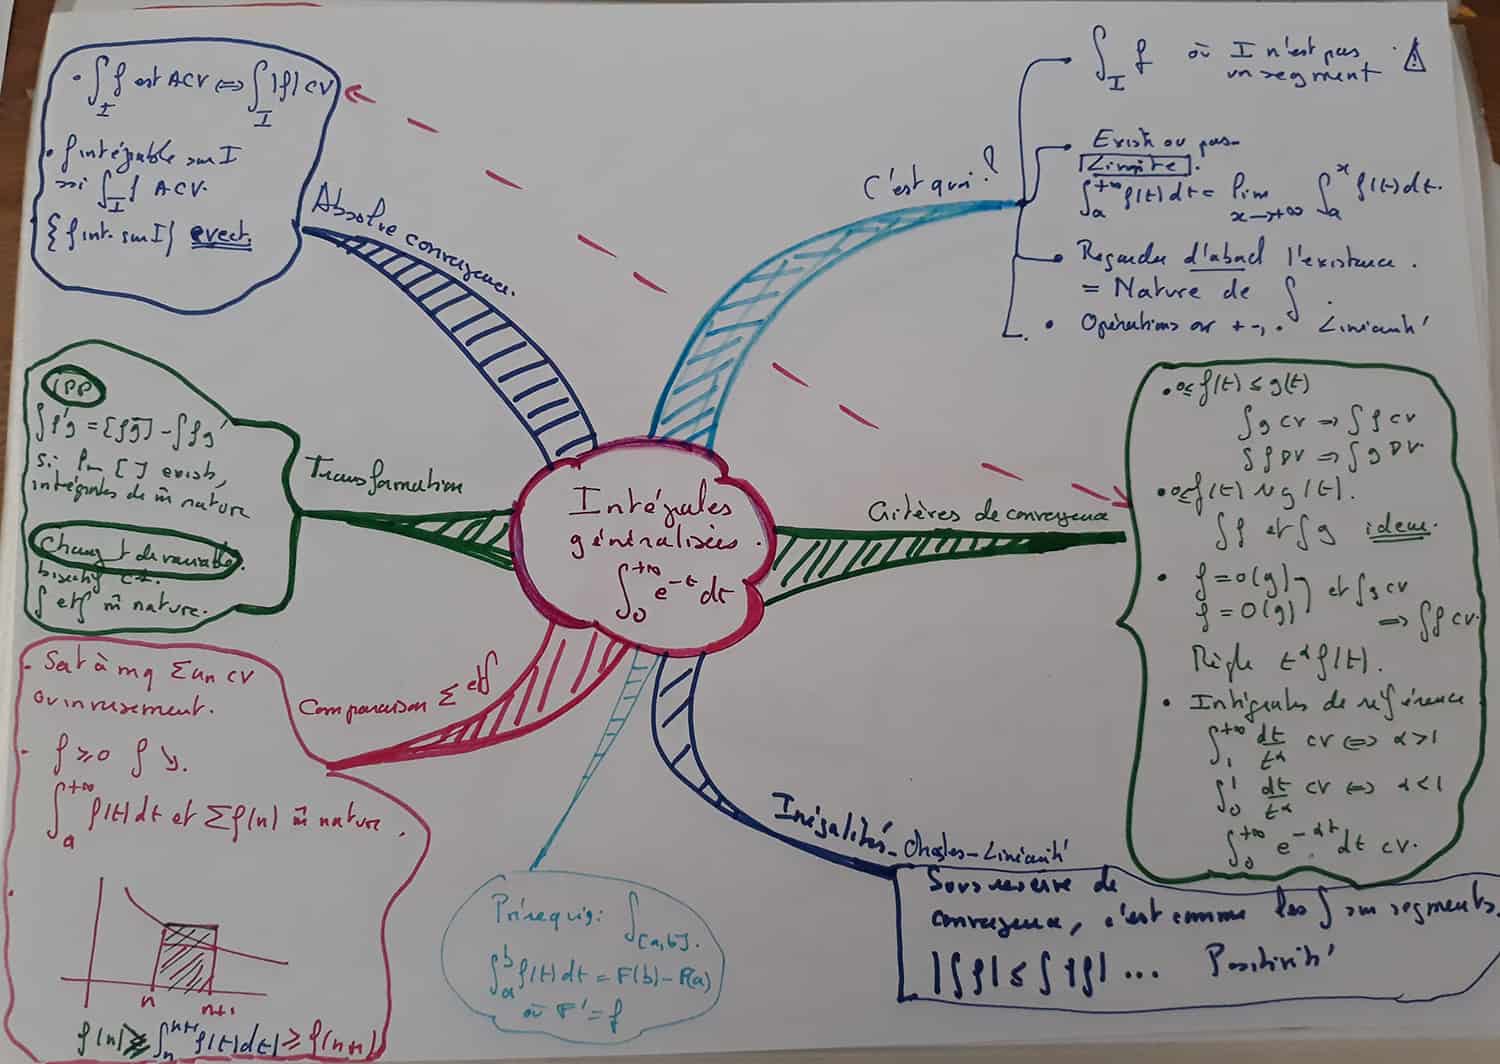 Intégrales
généralisées.
∫₀^{+∞} e^{-t} dt
C'est quoi ?
• ∫_I f où I n'est pas
un segment ⚠
• Existe ou pas
Limite.
∫_a^{+∞} f(t) dt = lim_{x→+∞} ∫_a^x f(t) dt.
• Regarder d'abord l'existence.
= Nature de ∫
• Opérations sur + -, . Linéarité
Critères de convergence
• 0≤ f(t) ≤ g(t)
∫g CV ⇒ ∫f CV
∫f DV ⇒ ∫g DV
• 0≤ f(t) ~ g(t).
∫f et ∫g idem.
• f = o(g)
f = O(g) } et ∫g CV
⇒ ∫f CV.
Règle t^α f(t).
• Intégrales de référence
∫₁^{+∞} dt/t^α CV ⇔ α>1
∫₀^1 dt/t^α CV ⇔ α<1
∫₀^{+∞} e^{-αt} dt CV.
Inégalités - Chasles - Linéarité
Sous réserve de
convergence, c'est comme les ∫ sur segments.
|∫f| ≤ ∫|f| ... Positivité
Prérequis : ∫_{[a,b]}.
∫_a^b f(t) dt = F(b) - F(a)
où F' = f
Comparaison Σ et ∫
- Sert à mq Σun CV
ou inversement.
- f ≥ 0 f ↘.
∫_a^{+∞} f(t) dt et Σf(n) m̂ nature.
n n+1
f(n) ≥ ∫_n^{n+1} f(t) dt ≥ f(n+1)
Transformation
IPP
∫f'g = [fg] - ∫fg'
Si lim [ ] existe,
intégrales de m̂ nature
Chang^t de variable.
bijectif C¹.
∫ et ∫ m̂ nature.
Absolue convergence.
• ∫_I f est ACV ⇔ ∫_I |f| CV
• f intégrable sur I
ssi ∫_I f ACV.
{f int. sur I} evect.